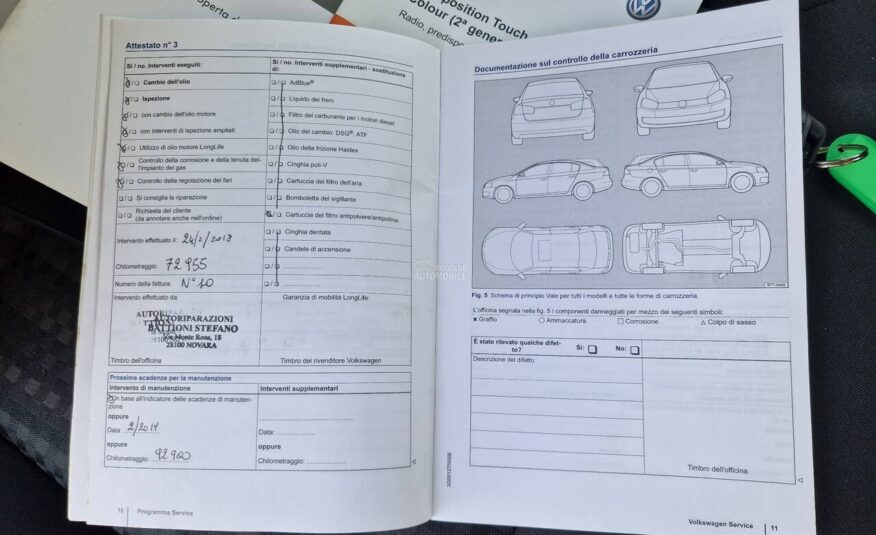 operta
position Touch
colour (2ª gener
Radio, predispo
Attestato n° 3
Sì / no. Interventi eseguiti:
Cambio dell'olio
Ispezione
con cambio dell'olio motore
con interventi di ispezione ampliati
Utilizzo di olio motore LongLife
Controllo della corrosione e della tenuta del-
l'impianto dei gas
Controllo della regolazione dei fari
Si consiglia la riparazione
Richiesta del cliente
(da annotare anche nell'ordine)
Intervento effettuato il: 24/2/2018
Chilometraggio: 72955
Numero della fattura: N° 10
Intervento effettuato da:
AUTORIPARAZIONI
BATTIONI STEFANO
Via Monte Rosa, 18
28100 NOVARA
Timbro dell'officina
Sì / no. Interventi supplementari - sostituzione
di:
AdBlue®
Liquido dei freni
Filtro del carburante per i motori diesel
Olio del cambio: DSG®, ATF
Olio della frizione Haldex
Cinghia poli-V
Cartuccia del filtro dell'aria
Bomboletta del sigillante
Cartuccia del filtro antipolvere/antipolline
Cinghia dentata
Candele di accensione
Garanzia di mobilità LongLife:
Timbro del rivenditore Volkswagen
Prossime scadenze per la manutenzione
Intervento di manutenzione
in base all'indicatore delle scadenze di manuten-
zione
oppure
Data: 2/2019
oppure
Chilometraggio: 92900
Interventi supplementari
Data:
oppure
Chilometraggio:
10 Programma Service
POLOVNI
AUTOMOBILI
Documentazione sul controllo della carrozzeria
BTT-0449
Fig. 5 Schema di principio Vale per tutti i modelli e tutte le forme di carrozzeria.
L'officina segnala nella fig. 5 i componenti danneggiati per mezzo dei seguenti simboli:
× Graffio ○ Ammaccatura □ Corrosione △ Colpo di sasso
È stato rilevato qualche difet-
to? Sì: No:
Descrizione del difetto
Timbro dell'officina
Volkswagen Service 11